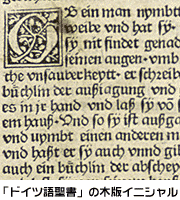 B ein man nymbt
weibe vnd hat sy.
sy nit findet genad
seinen augen·vmb
the vnsauberkeytt·er schreib
büchlin der außiagung vnd
es in jr hand vnd laß sy võ s
em hauß·Vnd so sy ist außga
vnd nymbt einen anderen m
vnd haßt er sy auch vnnd gib
auch ein büchlin der abschey
「ドイツ語聖書」の木版イニシャル